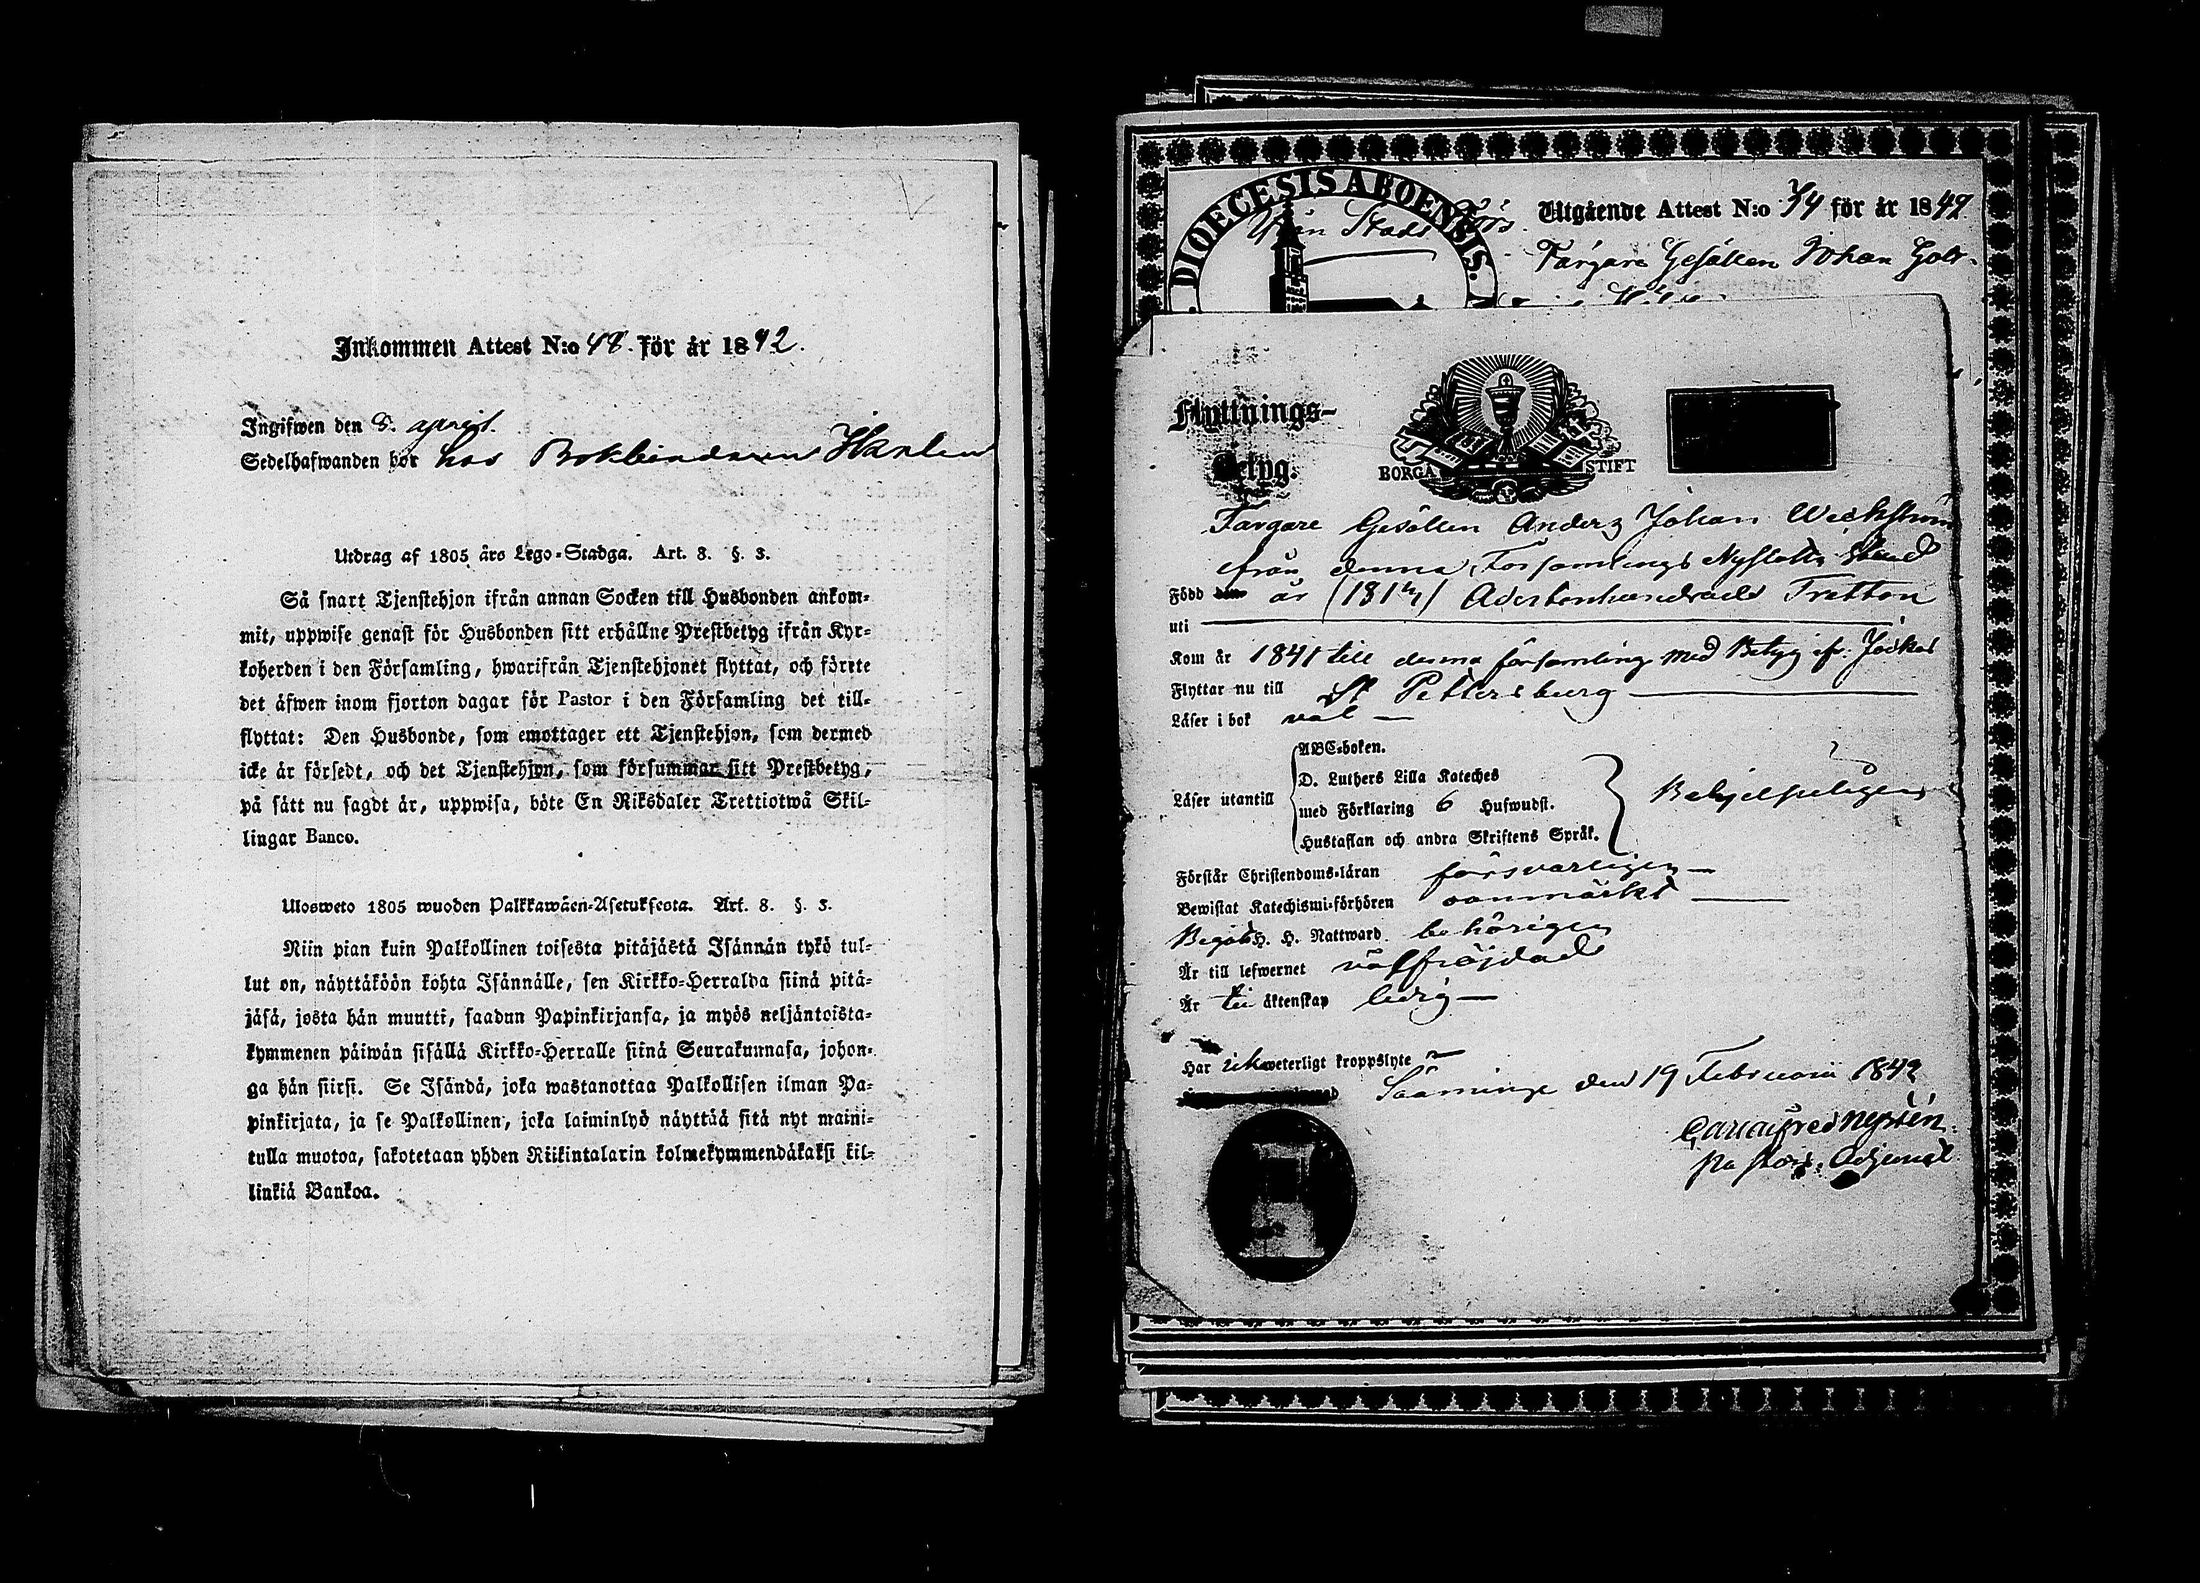 Inkommen Attest N:o 48. för år 1842.
Ingifwen den 8. april.
Sedelhafwanden bor hos Bokbindaren
Utdrag af 1805 års Lego-Stadga. Art. 8. §. 3.
Så snart Tjenstehjon ifrån annan Socken till Husbonden ankom-
mit, uppwise genast för Husbonden sitt erhållne Prestbetyg ifrån Kyr-
koherden i den Församling, hwarifrån Tjenstehjonet flyttat, och förete
det äfwen inom fjorton dagar för Pastor i den Församling det till-
flyttat: Den Husbonde, som emottager ett Tjenstehjon, som dermed
icke är försedt, och det Tjenstehjon, som försummar sitt Prestbetyg,
på sätt nu sagdt är, uppwisa, böte En Riksdaler Trettiotwå Skil-
lingar Banco.
Ulosweto 1805 wuoden Palkkawäen-Asetuksesta. Art. 8. §. 3.
Niin pian kuin Palkollinen toisesta pitäjästä Isännän tykö tul-
lut on, näyttäköön kohta Isännälle, sen Kirkko-Herralda siinä pitä-
jäsä, josta hän muutti, saadun Papinkirjansa, ja myös neljäntoista-
kymmenen päiwän sisällä Kirkko-Herralle siinä Seurakunnasa, johon-
ga hän siirsi. Se Isändä, joka wastanottaa Palkollisen ilman Pa-
pinkirjata, ja se Palkollinen, joka laiminlyö näyttää sitä nyt maini-
tulla muotoa, sakotetaan yhden Riikintalarin kolmekymmendäkaksi kil-
linkiä Bankoa.
DIOECESIS ABOENSIS.
Utgående Attest N:o 34 för år 1842
Färgare Gesällen Johan
Flyttnings-
Betyg.
BORGÅ STIFT
Färgare Gesällen Anders Johan Weckström
från denna Församlings Nyslotts stad
Född den år (1813) Adertonhundrade Tretton
uti
Kom år 1841 till denna församling med Betyg ifr. Jockas
Flyttar nu till St Pettersburg
Läser i bok väl
Läser utantill
ABC-boken.
D. Luthers Lilla Kateches
med Förklaring 6 Hufwudst.
Hustaflan och andra Skriftens Språk.
Behjelpeligen
Förstår Christendoms-läran försvarligen
Bewistat Katechismi-förhören oanmärkt
Begått H. H. Nattward behörigen
Är till lefwernet välfrejdad
Är till äktenskap ledig
Har icke weterligt kroppslyte
Sääminge den 19 Februarii 1842
Carl Alfred Nystén.
Pastors Adjunct